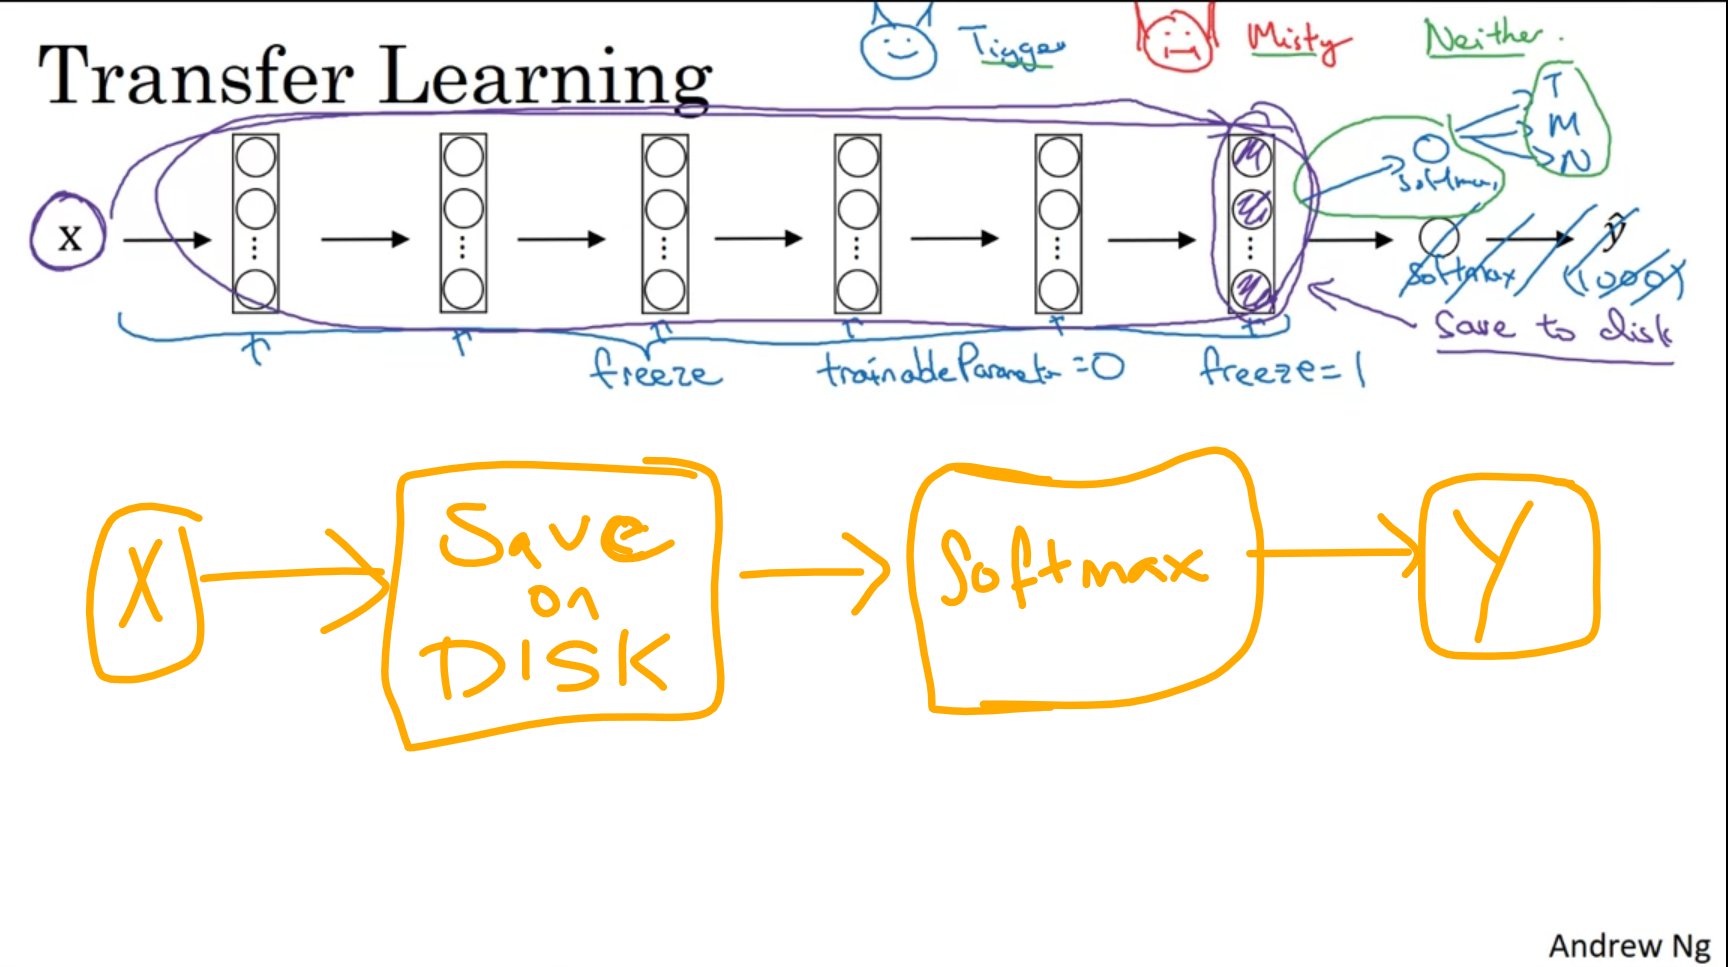 Transfer Learning
Tigger Misty Neither.
T
M
N
softmax
x
ŷ
softmax (1000)
save to disk
freeze trainableParameter = 0 freeze = 1
X
Save
on
DISK
Softmax
Y
Andrew Ng